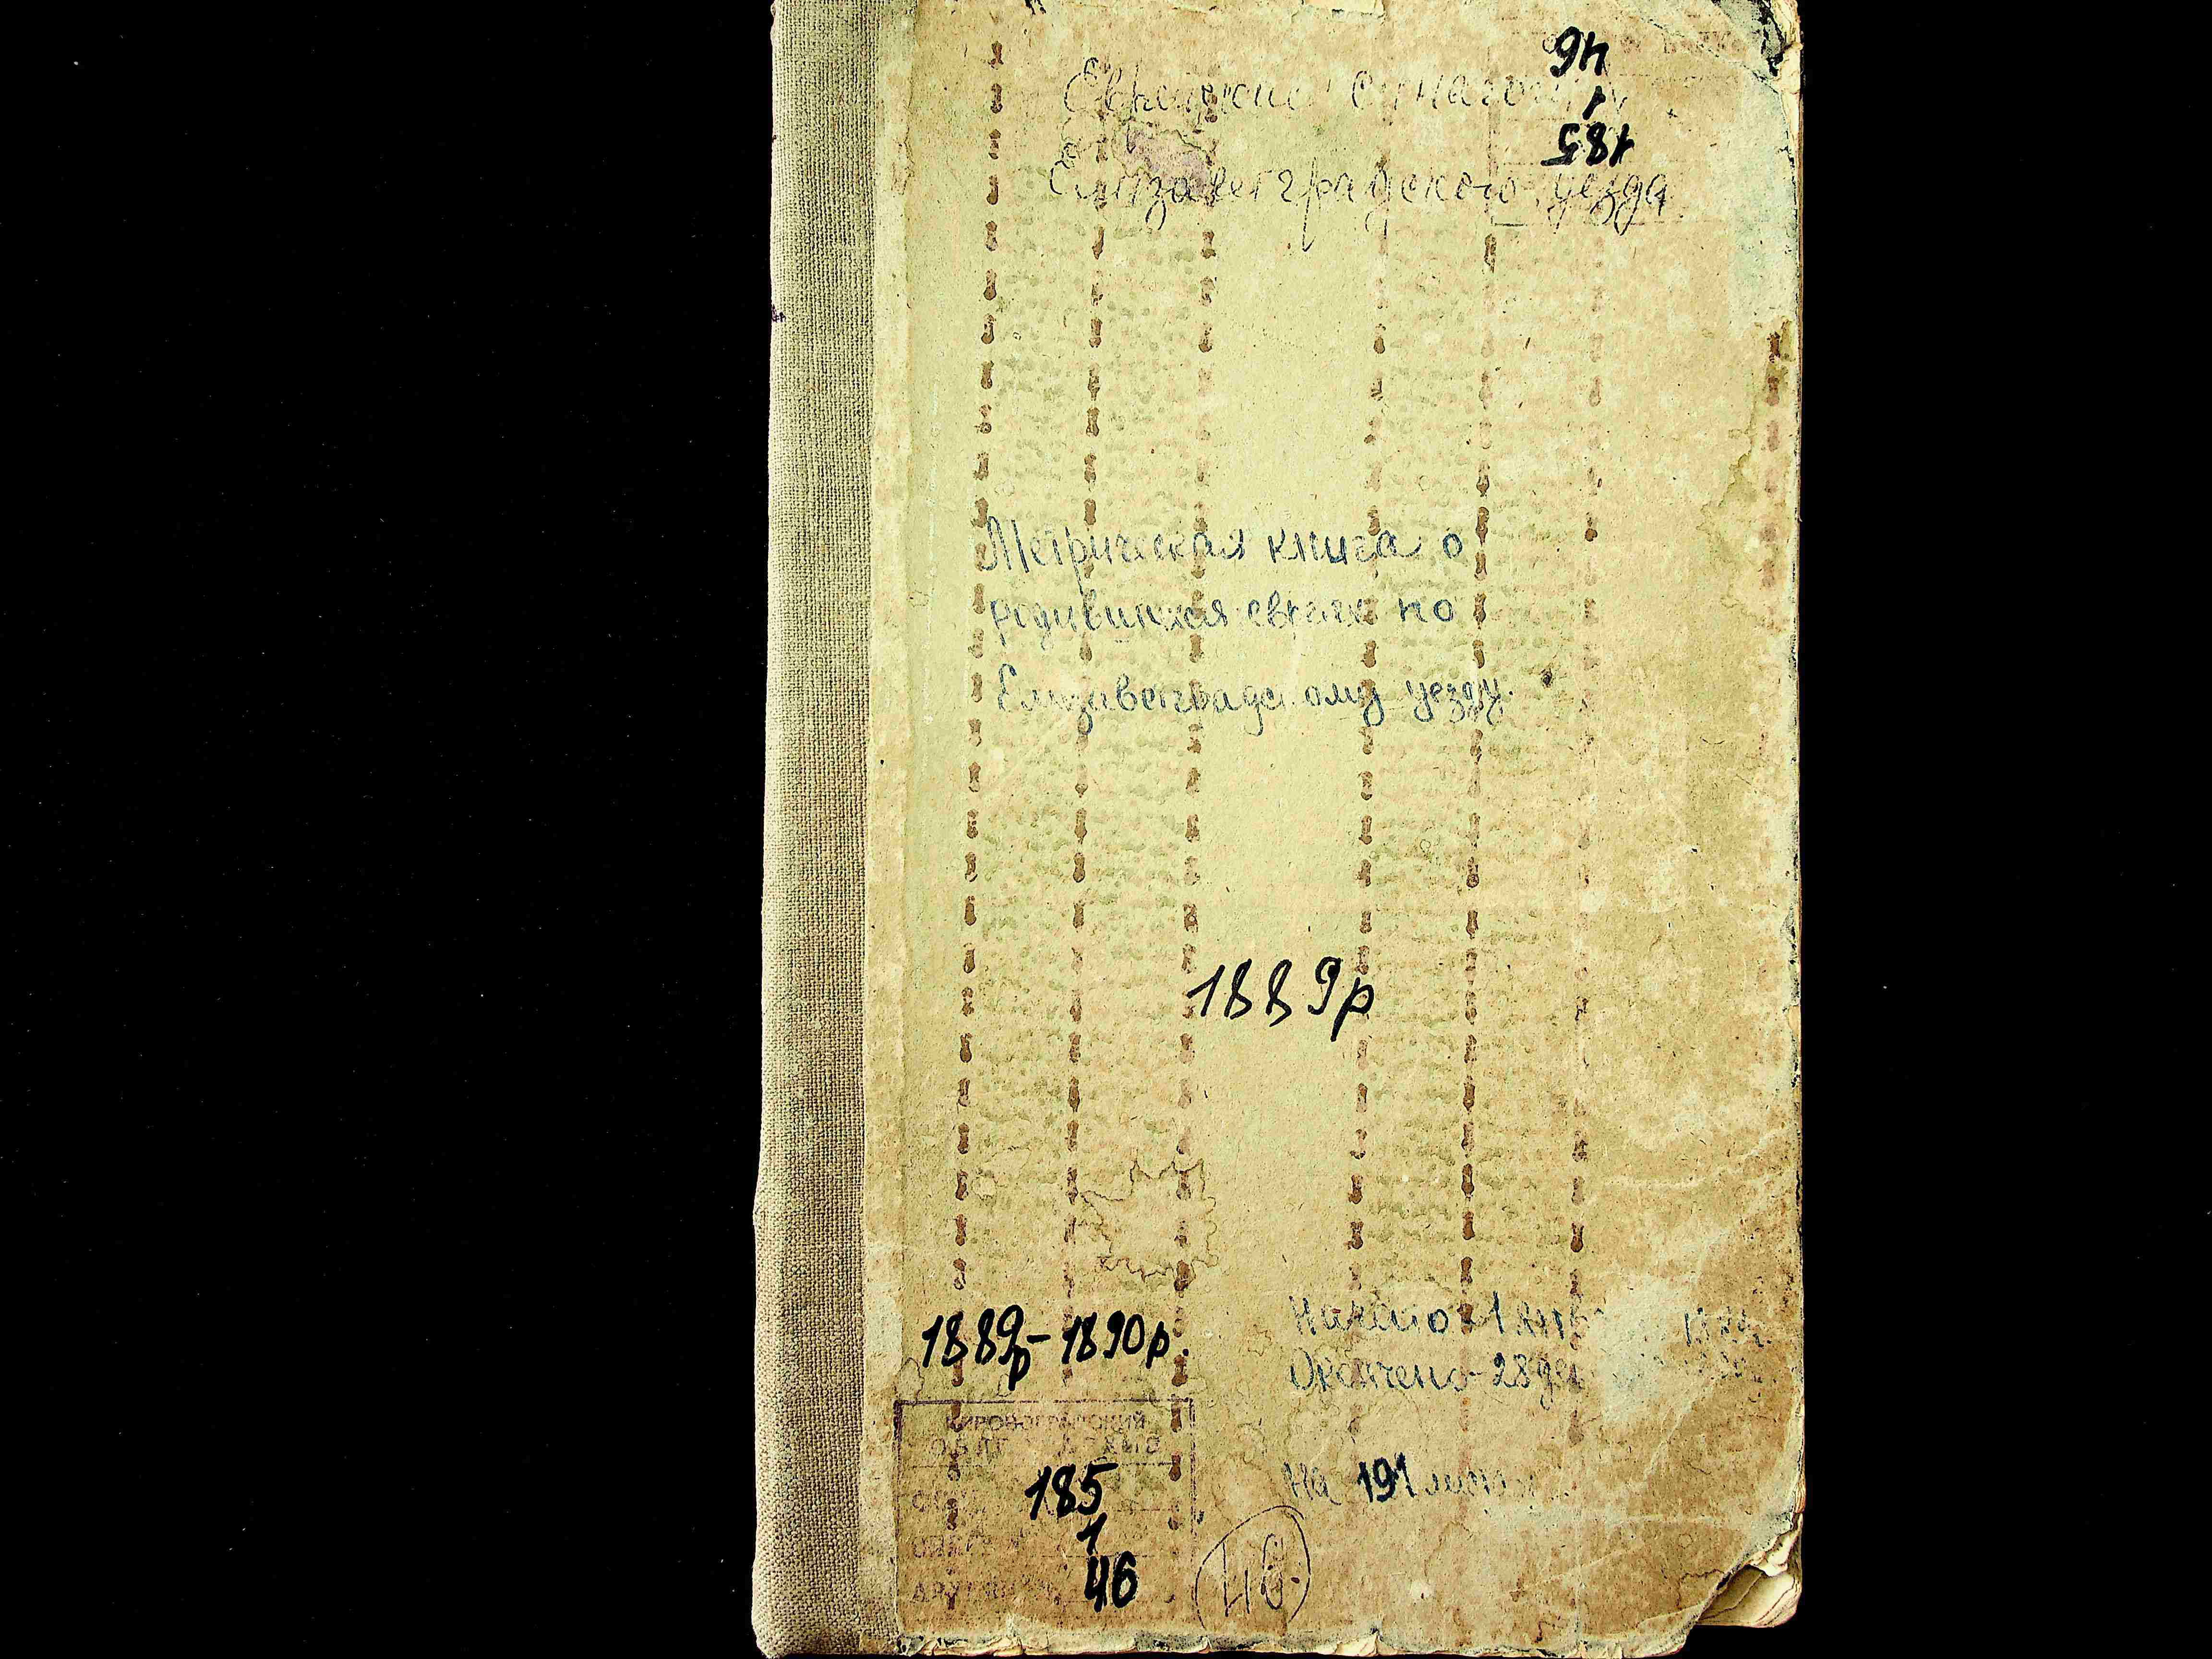 46
1
185
Еврейские синагоги
Елизаветградского уезда
Метрическая книга о
родившихся евреях по
Елизаветградскому уезду.
1889р
1889р - 1890р.
Начато 1
Окончено 28 де
КИРОВОГРАДСКИЙ
ОБЛГ АРХИВ
185
1
46
На 191 листах
46.